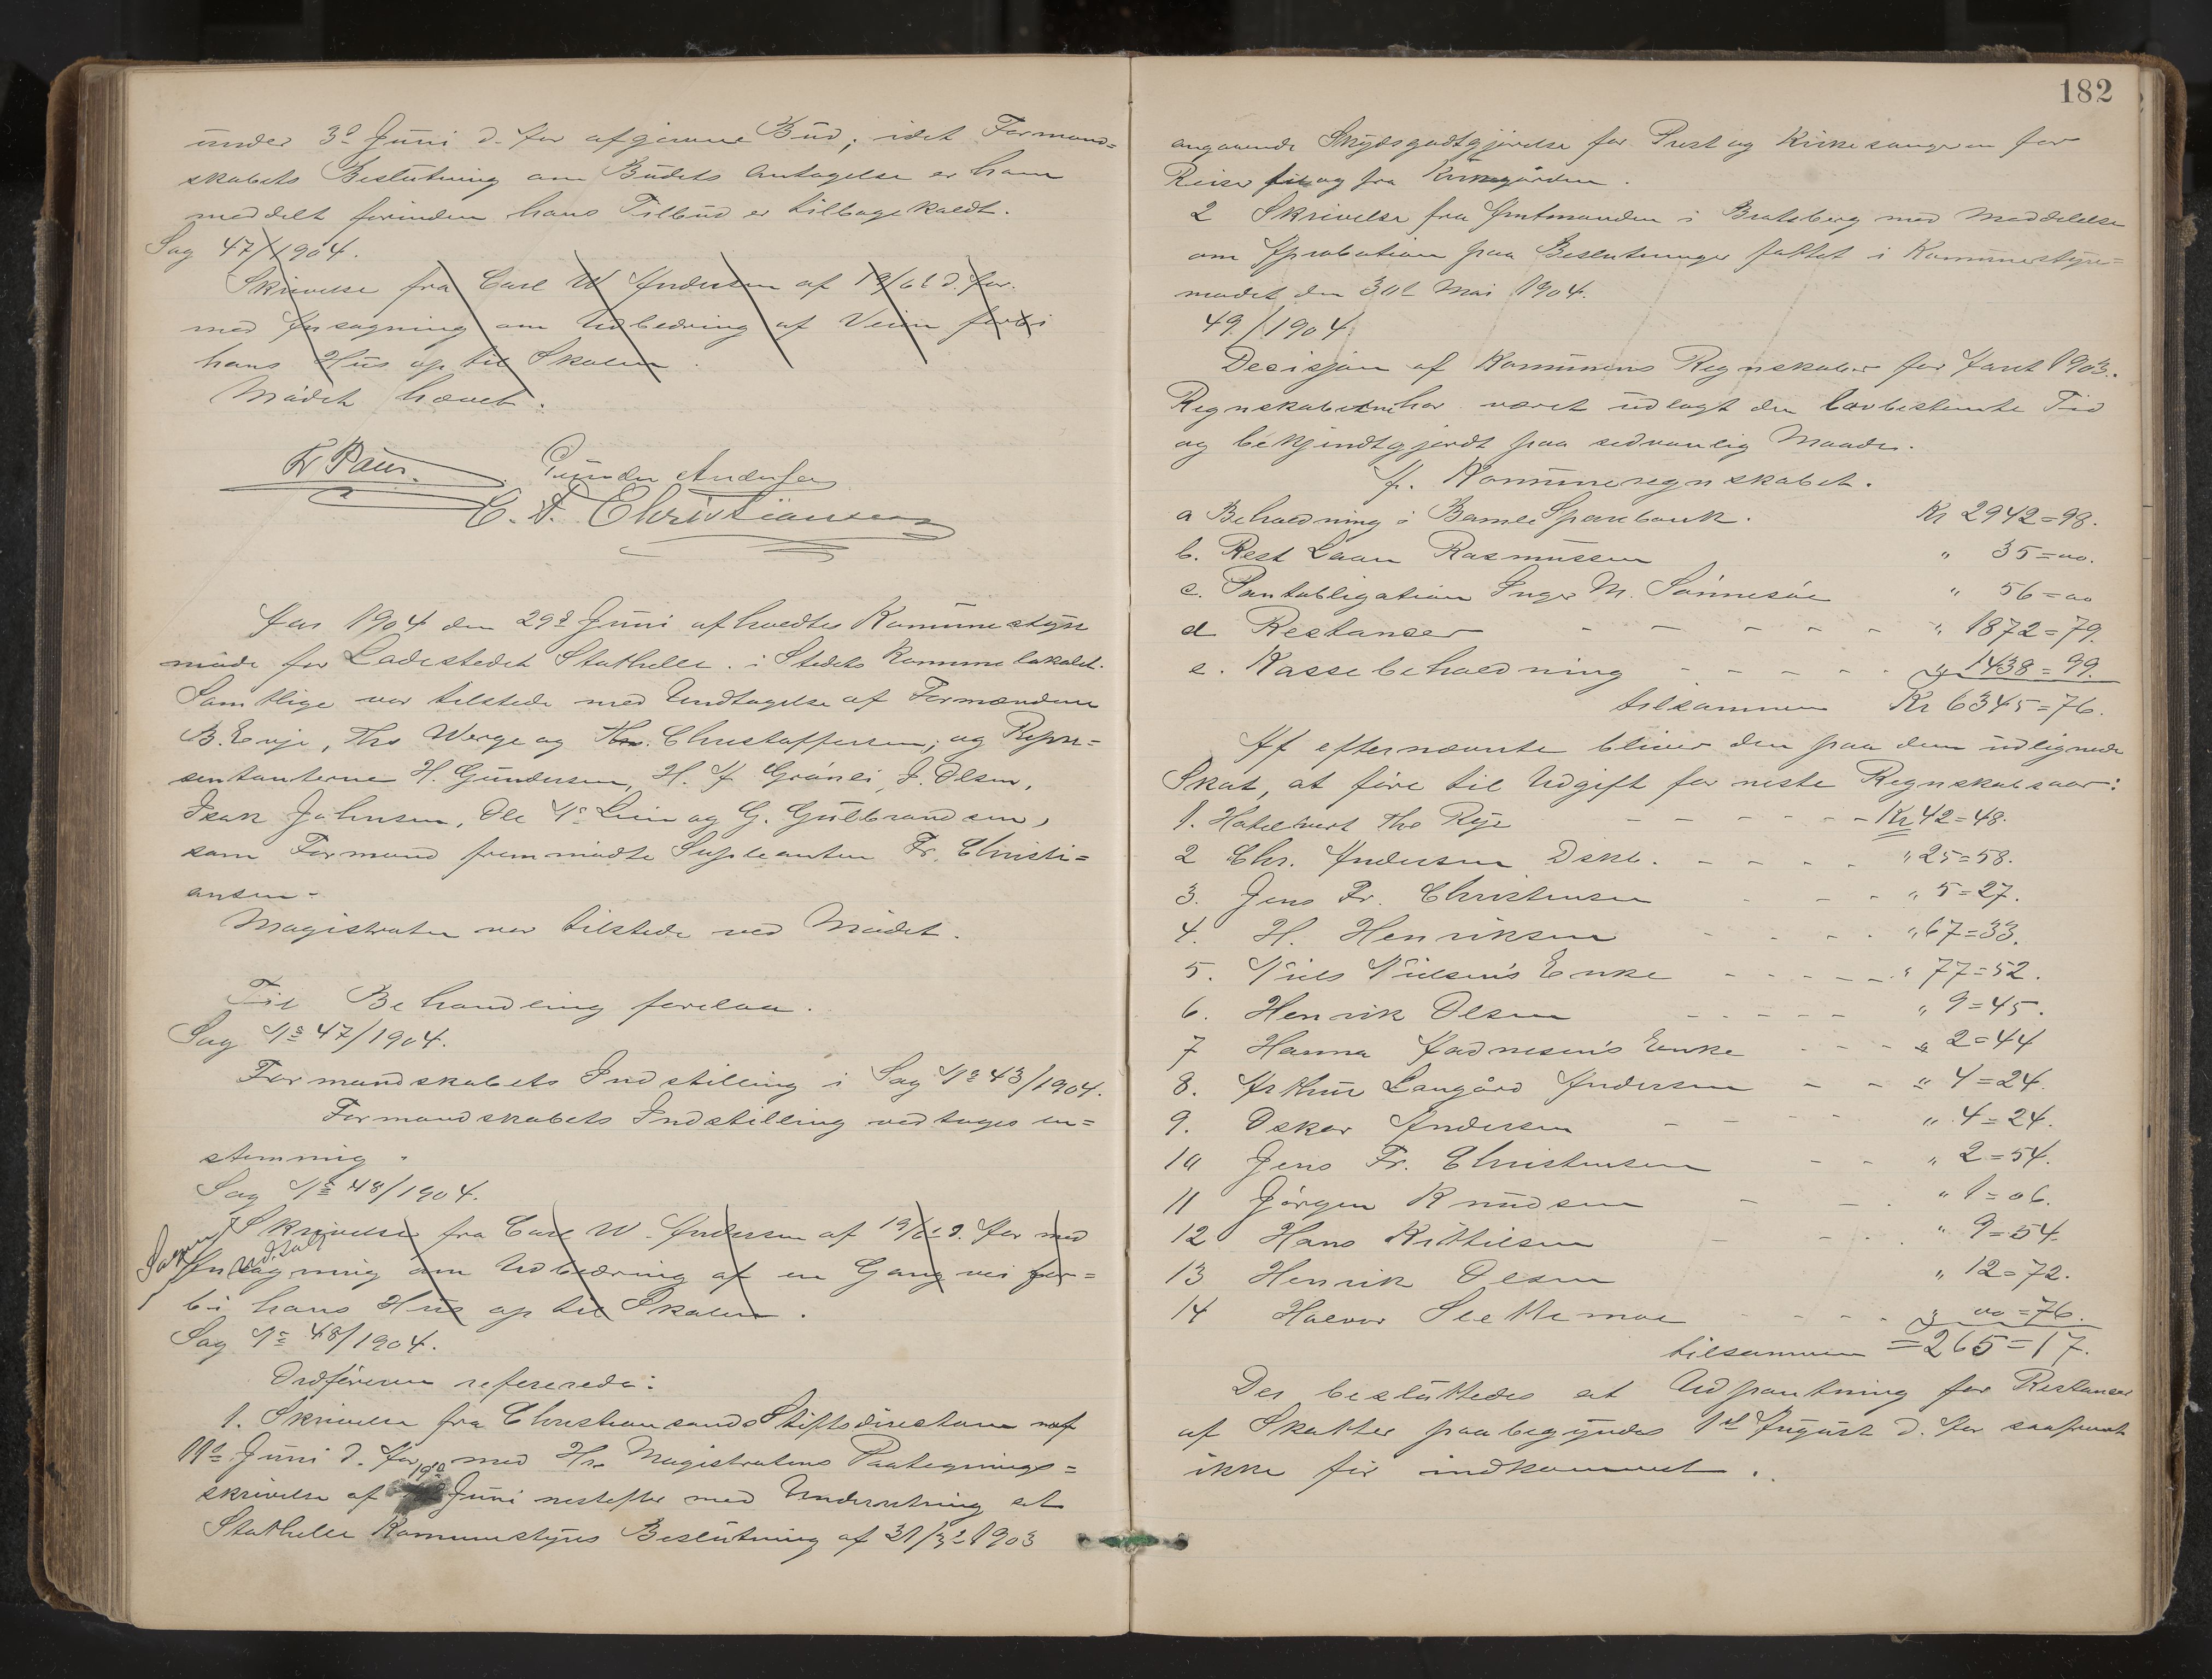 under 3d Juni d. Aar afgivne Bud; idet Formand=
skabets Beslutning om Budets Antagelse er ham
meddelt forinden hans Tilbud er tilbagekaldt.
Sag 47/1904.
Skrivelse fra Carl W Andersen af 19/6 d. Aar.
med Ansøgning om Udbedring af Veien forbi
hans Hus op til Skolen.
Mødet hævet.
Fr Paus. Gunder Andersen
C. F. Christiansen
Aar 1904 den 29d Juni afholdtes Kommunestyre
møde for Ladestedet Stathelle. i Stedets Kommunelokalet.
Samtlige var tilstede med Undtagelse af Formændene
B. Evje, Ths Werge og Chr. Christoffersen; og Repre=
sentanterne H. Gundersen, H. A Grønli, J. Olsen,
Isak Johnsen, Ole Ns Lien og G. Gulbrandsen,
som Formand fremmødte Supleanten Fr. Christi=
ansen -
Magistraten var tilstede ved Mødet.
Til Behandling forelaa.
Sag No 47/1904.
Formandskabets Indstilling i Sag No 43/1904.
Formandskabets Indstilling vedtages en=
stemmig.
Sag No 48/1904.
Skrivelse fra Carl W. Andersen af 19/6 d. Aar med
Ansøgning om Udbedring af en Gangvei for=
bi hans Hus op til Skolen.
Sagen udsat
Sag No 48/1904.
Ordføreren refererede:
1. Skrivelse fra Christiansands Stiftsdirection af
11te Juni d. Aar, med Hr. Magistratens Paategnings=
skrivelse af 19de Juni nestefter med Underretning at
Stathelle Kommunestyres Beslutning af 31/3 1903
182
angaaende Skydsgodtgjørelse for Prest og Kirkesangeren for
Reiser til og fra Kirkegården.
2 Skrivelse fra Amtmanden i Bratsberg med Meddelelse
om Aprobation paa Beslutninger fattet i Kommunestyre=
mødet den 30te Mai 1904.
49/1904
Decisjon af Kommunens Regnskaber for Aaret 1903.
Regnskaberne har været udlagt den lovbestemte Tid
og bekjendtgjordt paa sedvanlig Maade.
A. Kommuneregnskabet.
a Beholdning i Bamle Sparebank. Kr 2942=98.
b. Rest Laan Rasmussen " 35=00.
c. Pantobligation Inger M. Sønnesøe " 56=00
d Restanser - - - - - " 1872=79.
e. Kassebeholdning - - - - - " 1438=99.
tilsammen Kr 6345=76.
Af efternævnte bliver den paa dem udlignede
Skat, at føre til Udgift for neste Regnskabsaar:
1. Hotelvert Ths Rye - - - - - - Kr 42=48.
2 Chr. Andersen Dskb. - - - - " 25=58.
3. Jens Fr. Christensen - - - " 5=27.
4. H. Henriksen - - - - " 67=33.
5. Niels Nielsen's Enke - - - - - " 77=52.
6. Henrik Olsen - - - - - " 9=45.
7 Hanna Aadnesen's Enke - - - " 2=44
8. Arthur Langård Andersen - - " 4=24.
9. Oskar Andersen - - - - " 4=24.
10 Jens Fr. Christensen - - " 2=54.
11 Jørgen Knudsen - - " 1=06.
12 Hans Kittilsen - - - " 9=54.
13 Henrik Olsen " 12=72.
14 Halvor Slettemoe - - - - " 00=76.
tilsammen =265=17.
Der besluttedes at Udpantning for Restancer
af Skatter paabegyndes 1st August d. Aar saafremt
ikke før indkommet.